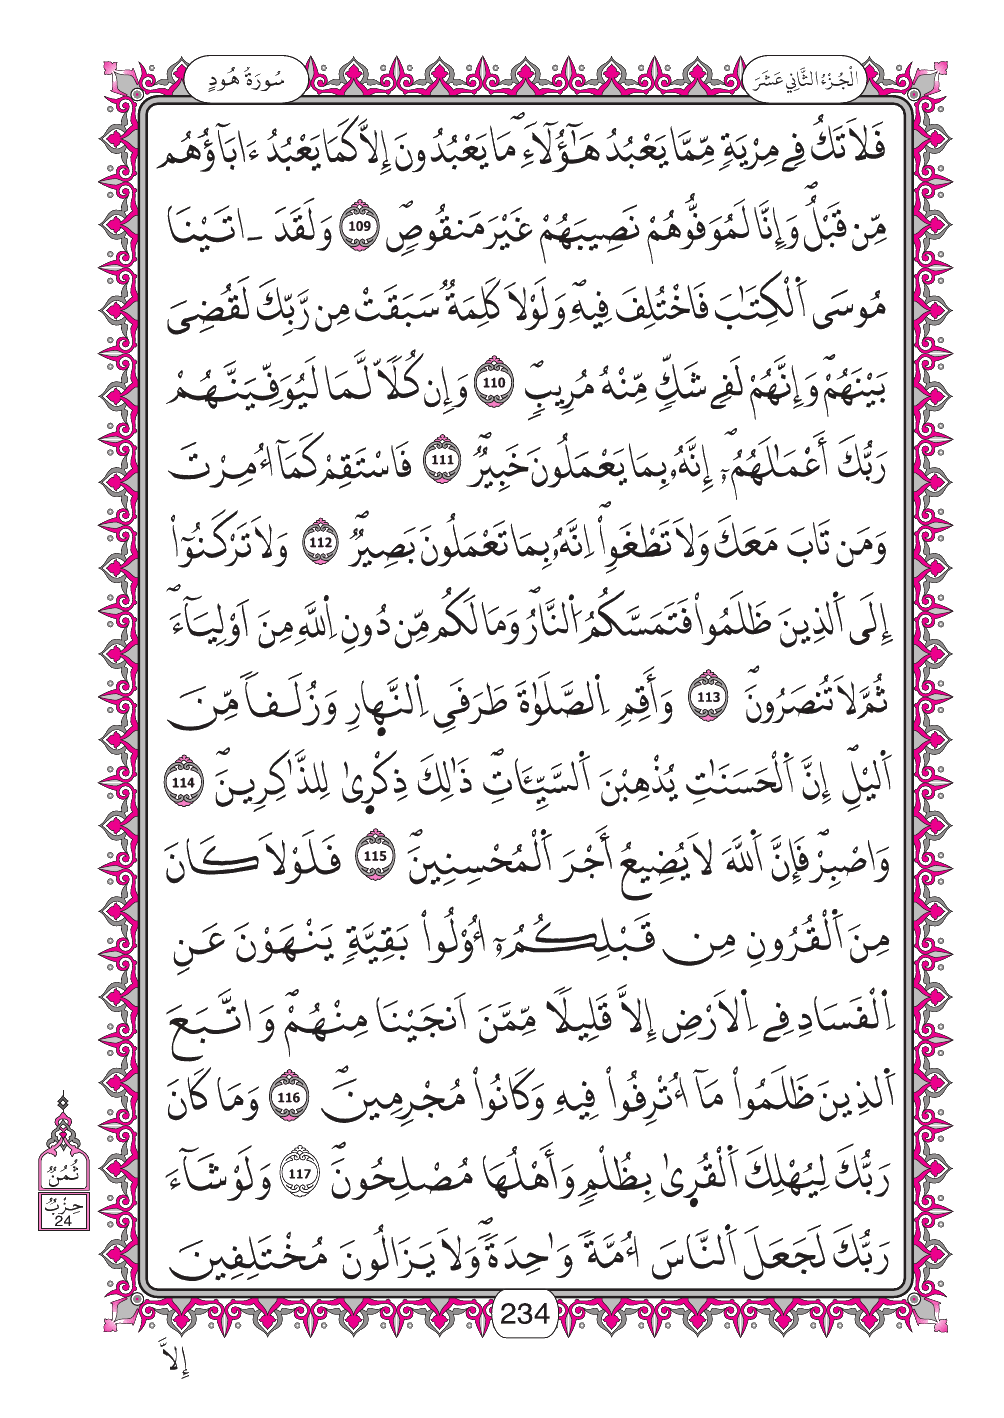 الْجُزْءُ الثَّانِي عَشَرَ
سُورَةُ هُودٍ
فَلَا تَكُ فِے مِرْيَةٍ مِّمَّا يَعْبُدُ هَٰٓؤُلَآءِۖ مَا يَعْبُدُونَ إِلَّا كَمَا يَعْبُدُ ءَابَآؤُهُم
مِّن قَبْلُۖ وَإِنَّا لَمُوَفُّوهُمْ نَصِيبَهُمْ غَيْرَ مَنقُوصٖۖ 109 وَلَقَدَ ـاتَيْنَا
مُوسَى اَلْكِتَٰبَ فَاخْتُلِفَ فِيهِۖ وَلَوْلَا كَلِمَةٞ سَبَقَتْ مِن رَّبِّكَ لَقُضِىَ
بَيْنَهُمْۖ وَإِنَّهُمْ لَفِے شَكّٖ مِّنْهُ مُرِيبٖۖ 110 وَإِن كُلّاٗ لَّمَا لَيُوَفِّيَنَّهُمْ
رَبُّكَ أَعْمَٰلَهُمُۥٓۖ إِنَّهُۥ بِمَا يَعْمَلُونَ خَبِيرٞۖ 111 فَاسْتَقِمْ كَمَآ أُمِرْتَ
وَمَن تَابَ مَعَكَ وَلَا تَطْغَوِاْۖ اِنَّهُۥ بِمَا تَعْمَلُونَ بَصِيرٞۖ 112 وَلَا تَرْكَنُوٓاْ
إِلَى اَلذِينَ ظَلَمُواْ فَتَمَسَّكُمُ اُلنَّارُۖ وَمَا لَكُم مِّن دُونِ اِللَّهِ مِنَ اَوْلِيَآءَۖ
ثُمَّ لَا تُنصَرُونَۖ 113 وَأَقِمِ اِلصَّلَوٰةَ طَرَفَيِ اِلنَّهارِ وَزُلَفاٗ مِّنَ
اَليْلِۖ إِنَّ اَلْحَسَنَٰتِ يُذْهِبْنَ اَلسَّيِّـَٔاتِۖ ذَٰلِكَ ذِكْرۭىٰ لِلذَّٰكِرِينَۖ 114
وَاصْبِرْۖ فَإِنَّ اَللَّهَ لَا يُضِيعُ أَجْرَ اَلْمُحْسِنِينَۖ 115 فَلَوْلَا كَانَ
مِنَ اَلْقُرُونِ مِن قَبْلِكُمُۥٓ أُوْلُواْ بَقِيَّةٖ يَنْهَوْنَ عَنِ
اِلْفَسَادِ فِے اِلَارْضِ إِلَّا قَلِيلٗا مِّمَّنَ اَنجَيْنَا مِنْهُمْۖ وَاتَّبَعَ
اَلذِينَ ظَلَمُواْ مَآ أُتْرِفُواْ فِيهِ وَكَانُواْ مُجْرِمِينَۖ 116 وَمَا كَانَ
رَبُّكَ لِيُهْلِكَ اَلْقُرۭىٰ بِظُلْمٖ وَأَهْلُهَا مُصْلِحُونَۖ 117 وَلَوْ شَآءَ
رَبُّكَ لَجَعَلَ اَلنَّاسَ أُمَّةٗ وَٰحِدَةٗۖ وَلَا يَزَالُونَ مُخْتَلِفِينَ
ثُمُنٌ
حِزْبٌ
24
234
إِلَّا